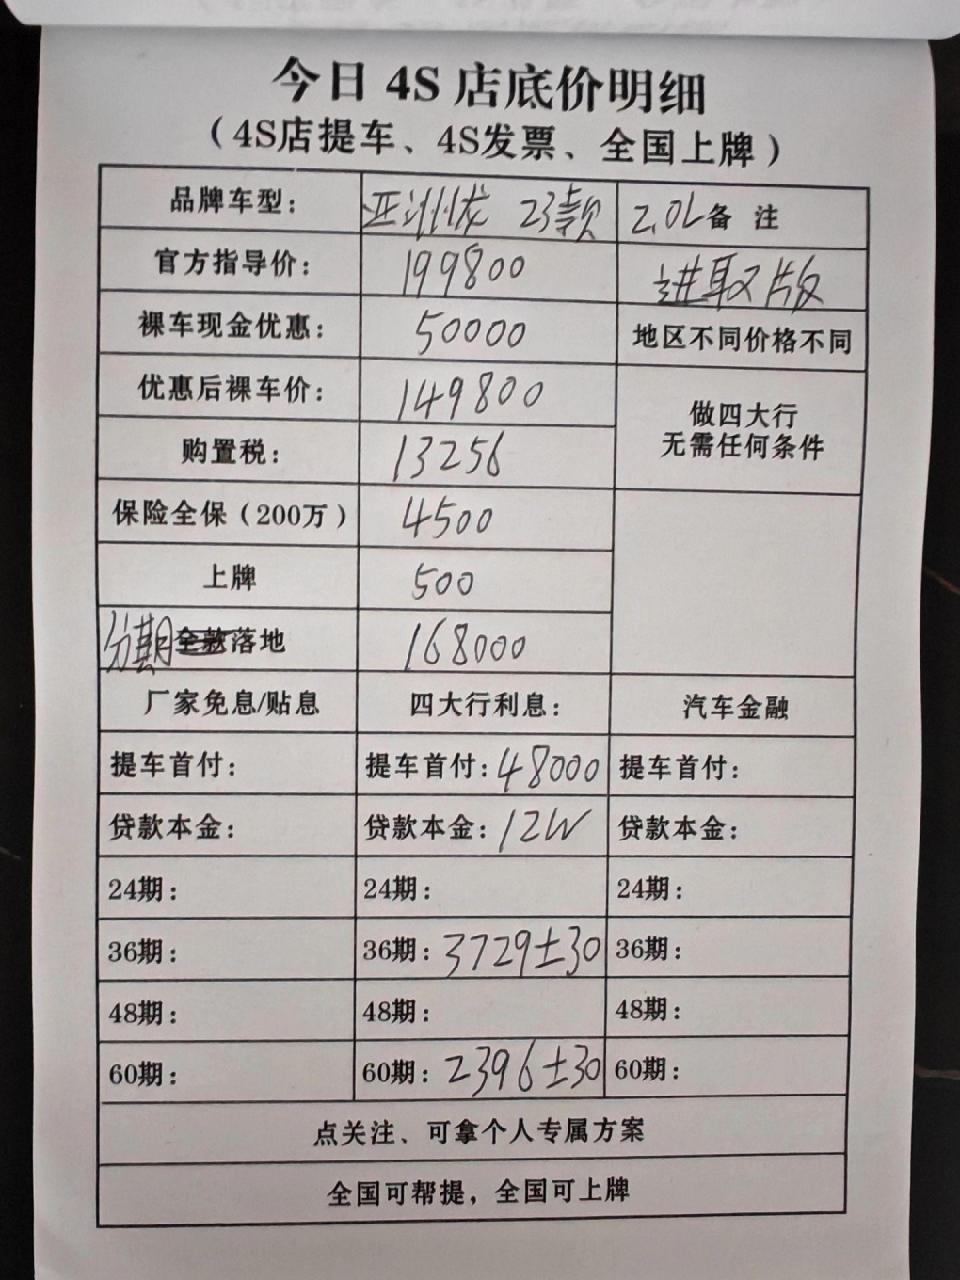 今日 4S 店底价明细
（4S店提车、4S发票、全国上牌）
品牌车型： 亚洲龙 23款 2.0L备 注
官方指导价： 199800 进取版
裸车现金优惠： 50000 地区不同价格不同
优惠后裸车价： 149800 做四大行
无需任何条件
购置税： 13256
保险全保（200万） 4500
上牌 500
分期全款落地 168000
厂家免息/贴息 四大行利息： 汽车金融
提车首付： 提车首付：48000 提车首付：
贷款本金： 贷款本金：12W 贷款本金：
24期： 24期： 24期：
36期： 36期：3729±30 36期：
48期： 48期： 48期：
60期： 60期：2396±30 60期：
点关注、可拿个人专属方案
全国可帮提，全国可上牌